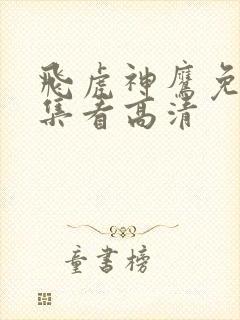 飛虎神鷹免
集看高清
童書榜